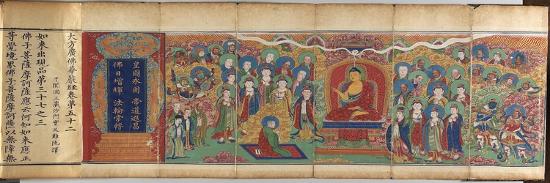 皇圖永固 帝道遐昌
佛日增輝 法輪常轉
大方廣佛華嚴經卷第五十二
于闐國三藏沙門實叉難陀譯
如來出現品第三十七之三
佛子菩薩摩訶薩應云何知如來應正
等覺境界佛子菩薩摩訶薩以無障無